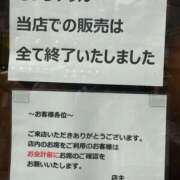 当店での販売は
全て終了いたしました
〜お客様各位〜
ご来店いただきありがとうございます。
店内のお席をご利用のお客様は
お会計前にお席のご確認を
お願いいたします。
店主